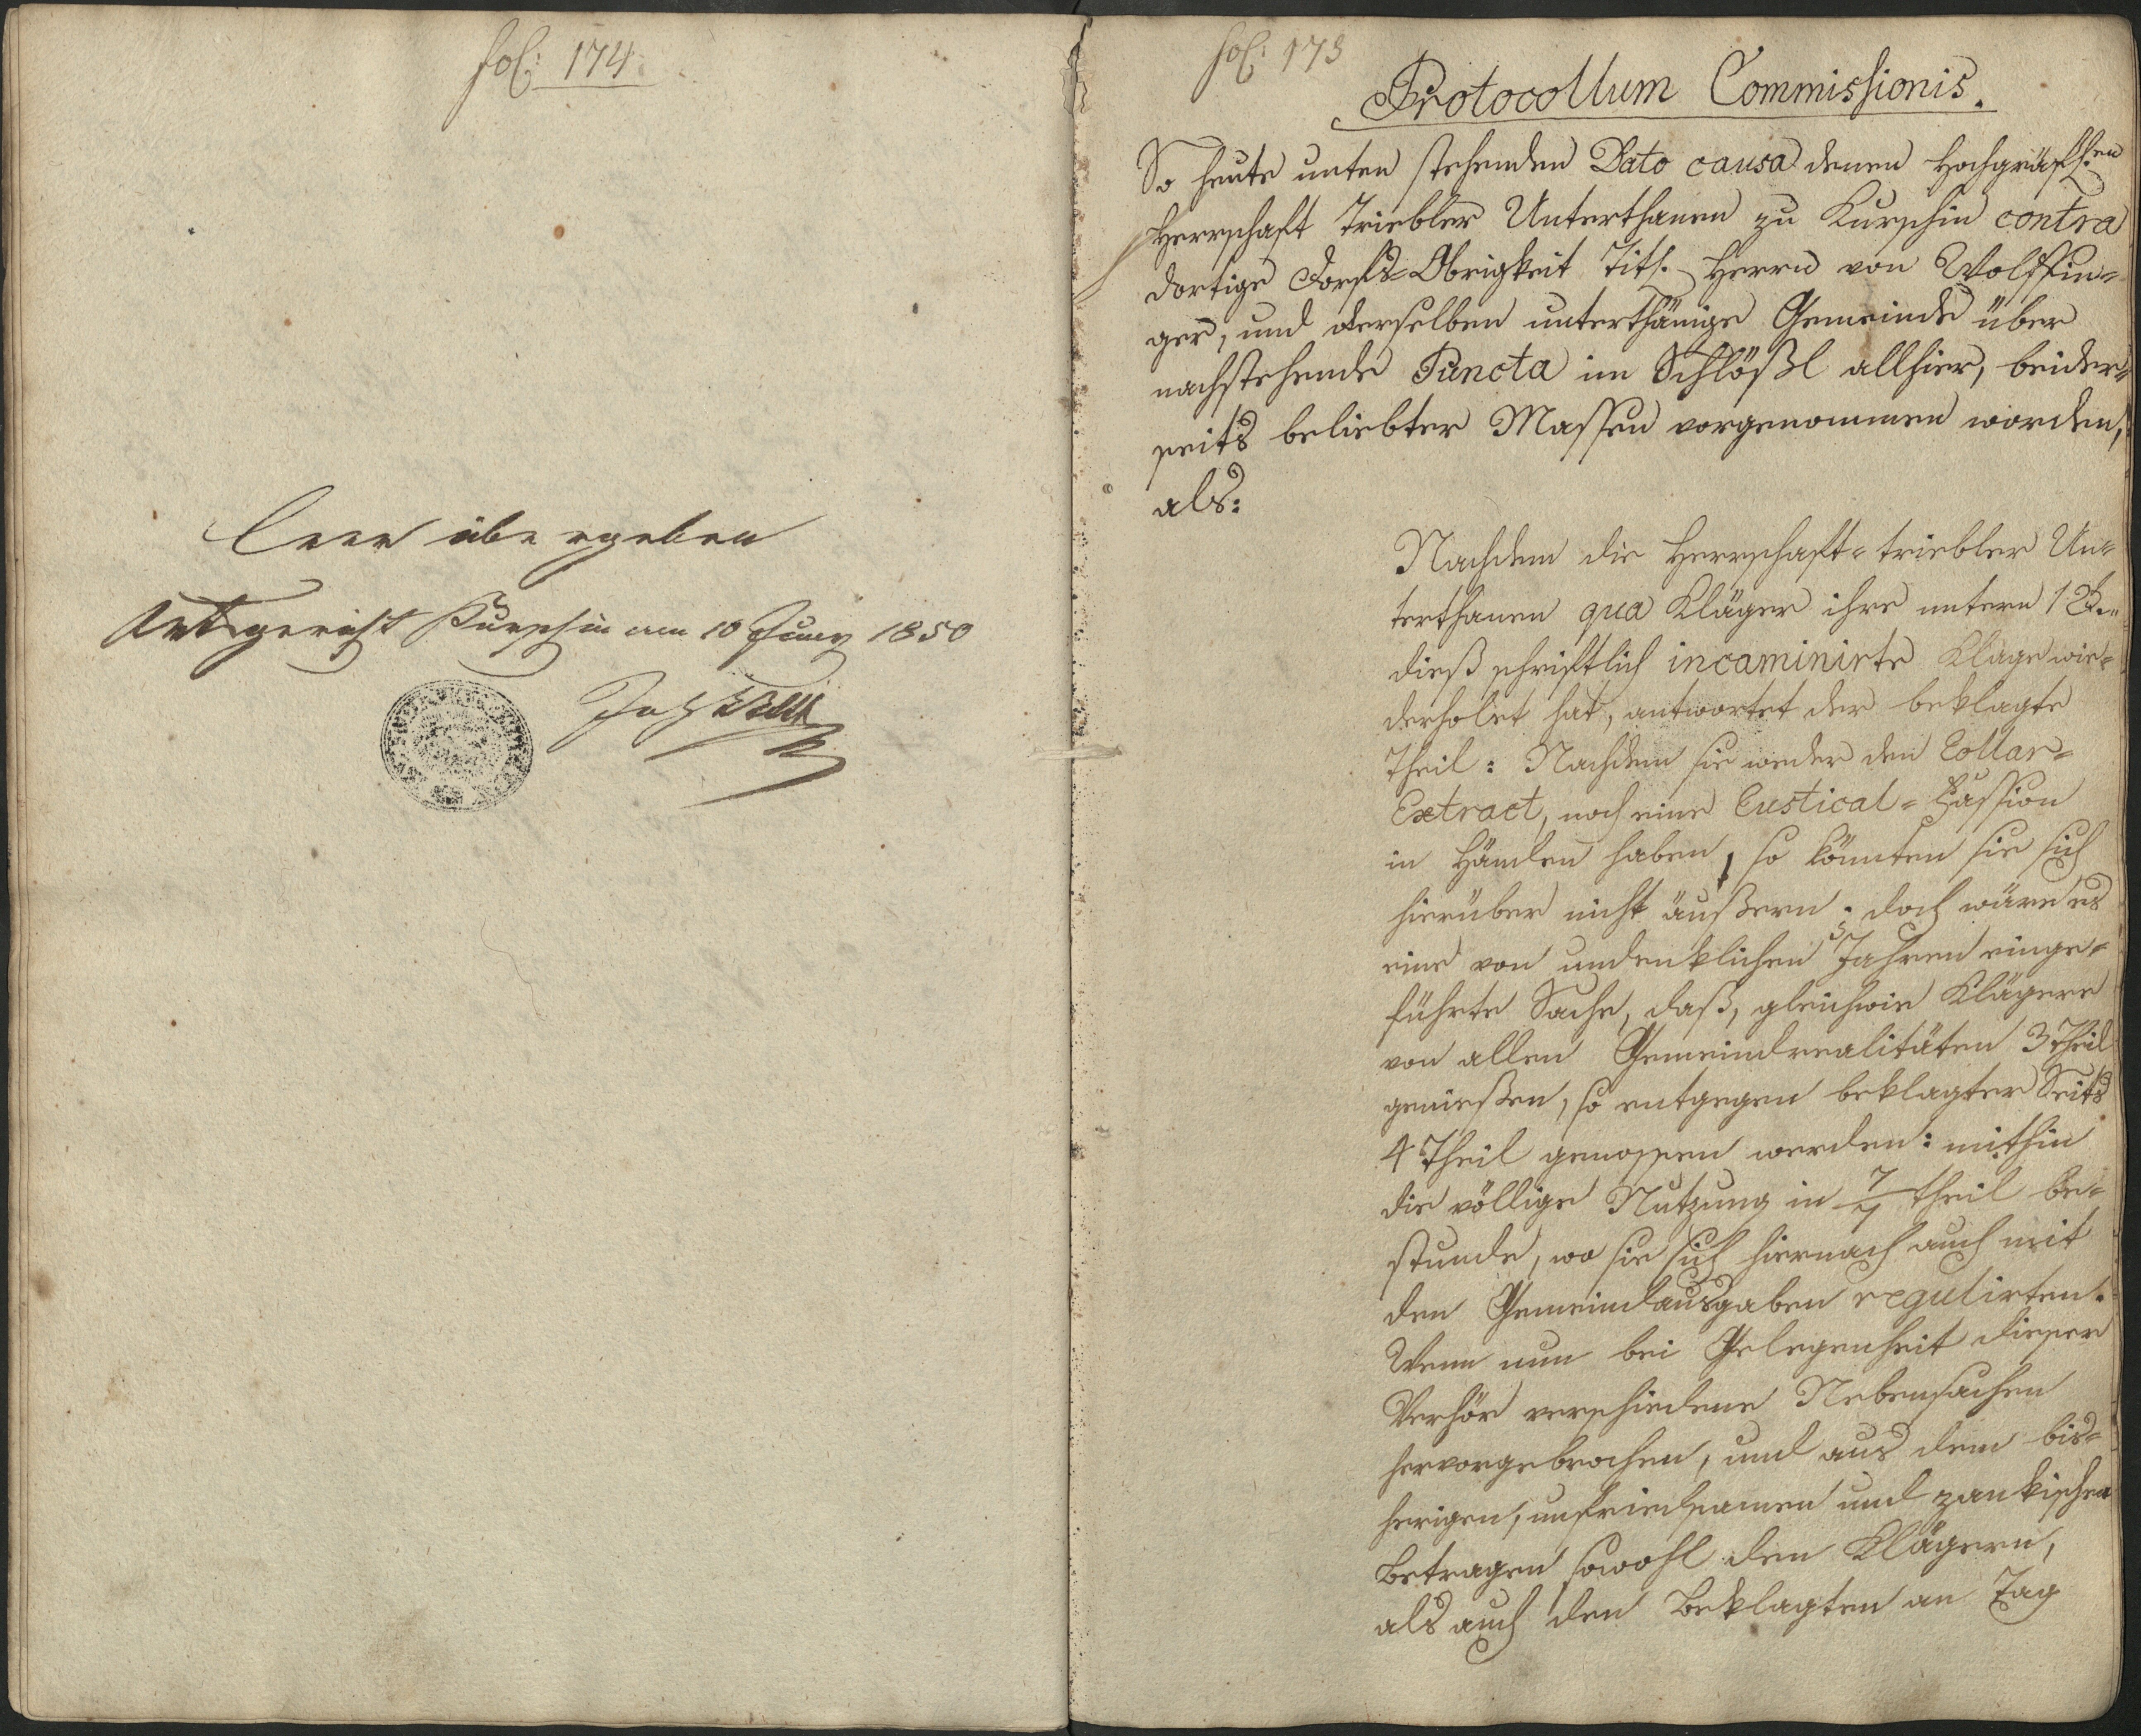 fol: 174.
leer übergeben
Ortsgericht Kurschin am 10 Juny 1850
fol: 173
Protocollum Commissionis.
So heute unten stehenden Dato causa denen Hochgräfl:en
Herrschaft Triebler Unterthanen zu Kurschin contra
dortige Dorfs-Obrigkeit Titl. Herrn von Wolffin-
ger, und derselben unterthänige Gemeinde über
nachstehende Puncta im Schlößl allhier, beider-
seits beliebter Massen vorgenommen worden,
als:
Nachdem die Herrschaft-triebler Un-
terthanen qua Kläger ihre untern 12t..
dieß schriftlich incaminirte Klage wie-
derholet hat, antwortet der beklagte
Theil: Nachdem sie weder den Collar-
Extract, noch eine Rustical-Fassion
in Händen haben, so könnten sie sich
hierüber nicht äußern; doch wäre es
eine von undenklichen Jahren einge-
führte Sache, daß, gleichwie Klägere
von allen Gemeindrealitäten 3 Theil
genießen, so entgegen beklagter Seits
4 Theil genossen werden: mithin
die völlige Nutzung in 7/7 theil be-
stunde, wo sie sich hiernach auch mit
den Gemeindausgaben regulirten.
Wenn nun bei Gelegenheit dieser
Verhör verschiedene Nebensachen
hervorgebrochen, und aus dem bis-
herigen, unfriedsamen und zankischen
Betragen sowohl den Klägern,
als auch den Beklagten an Tag